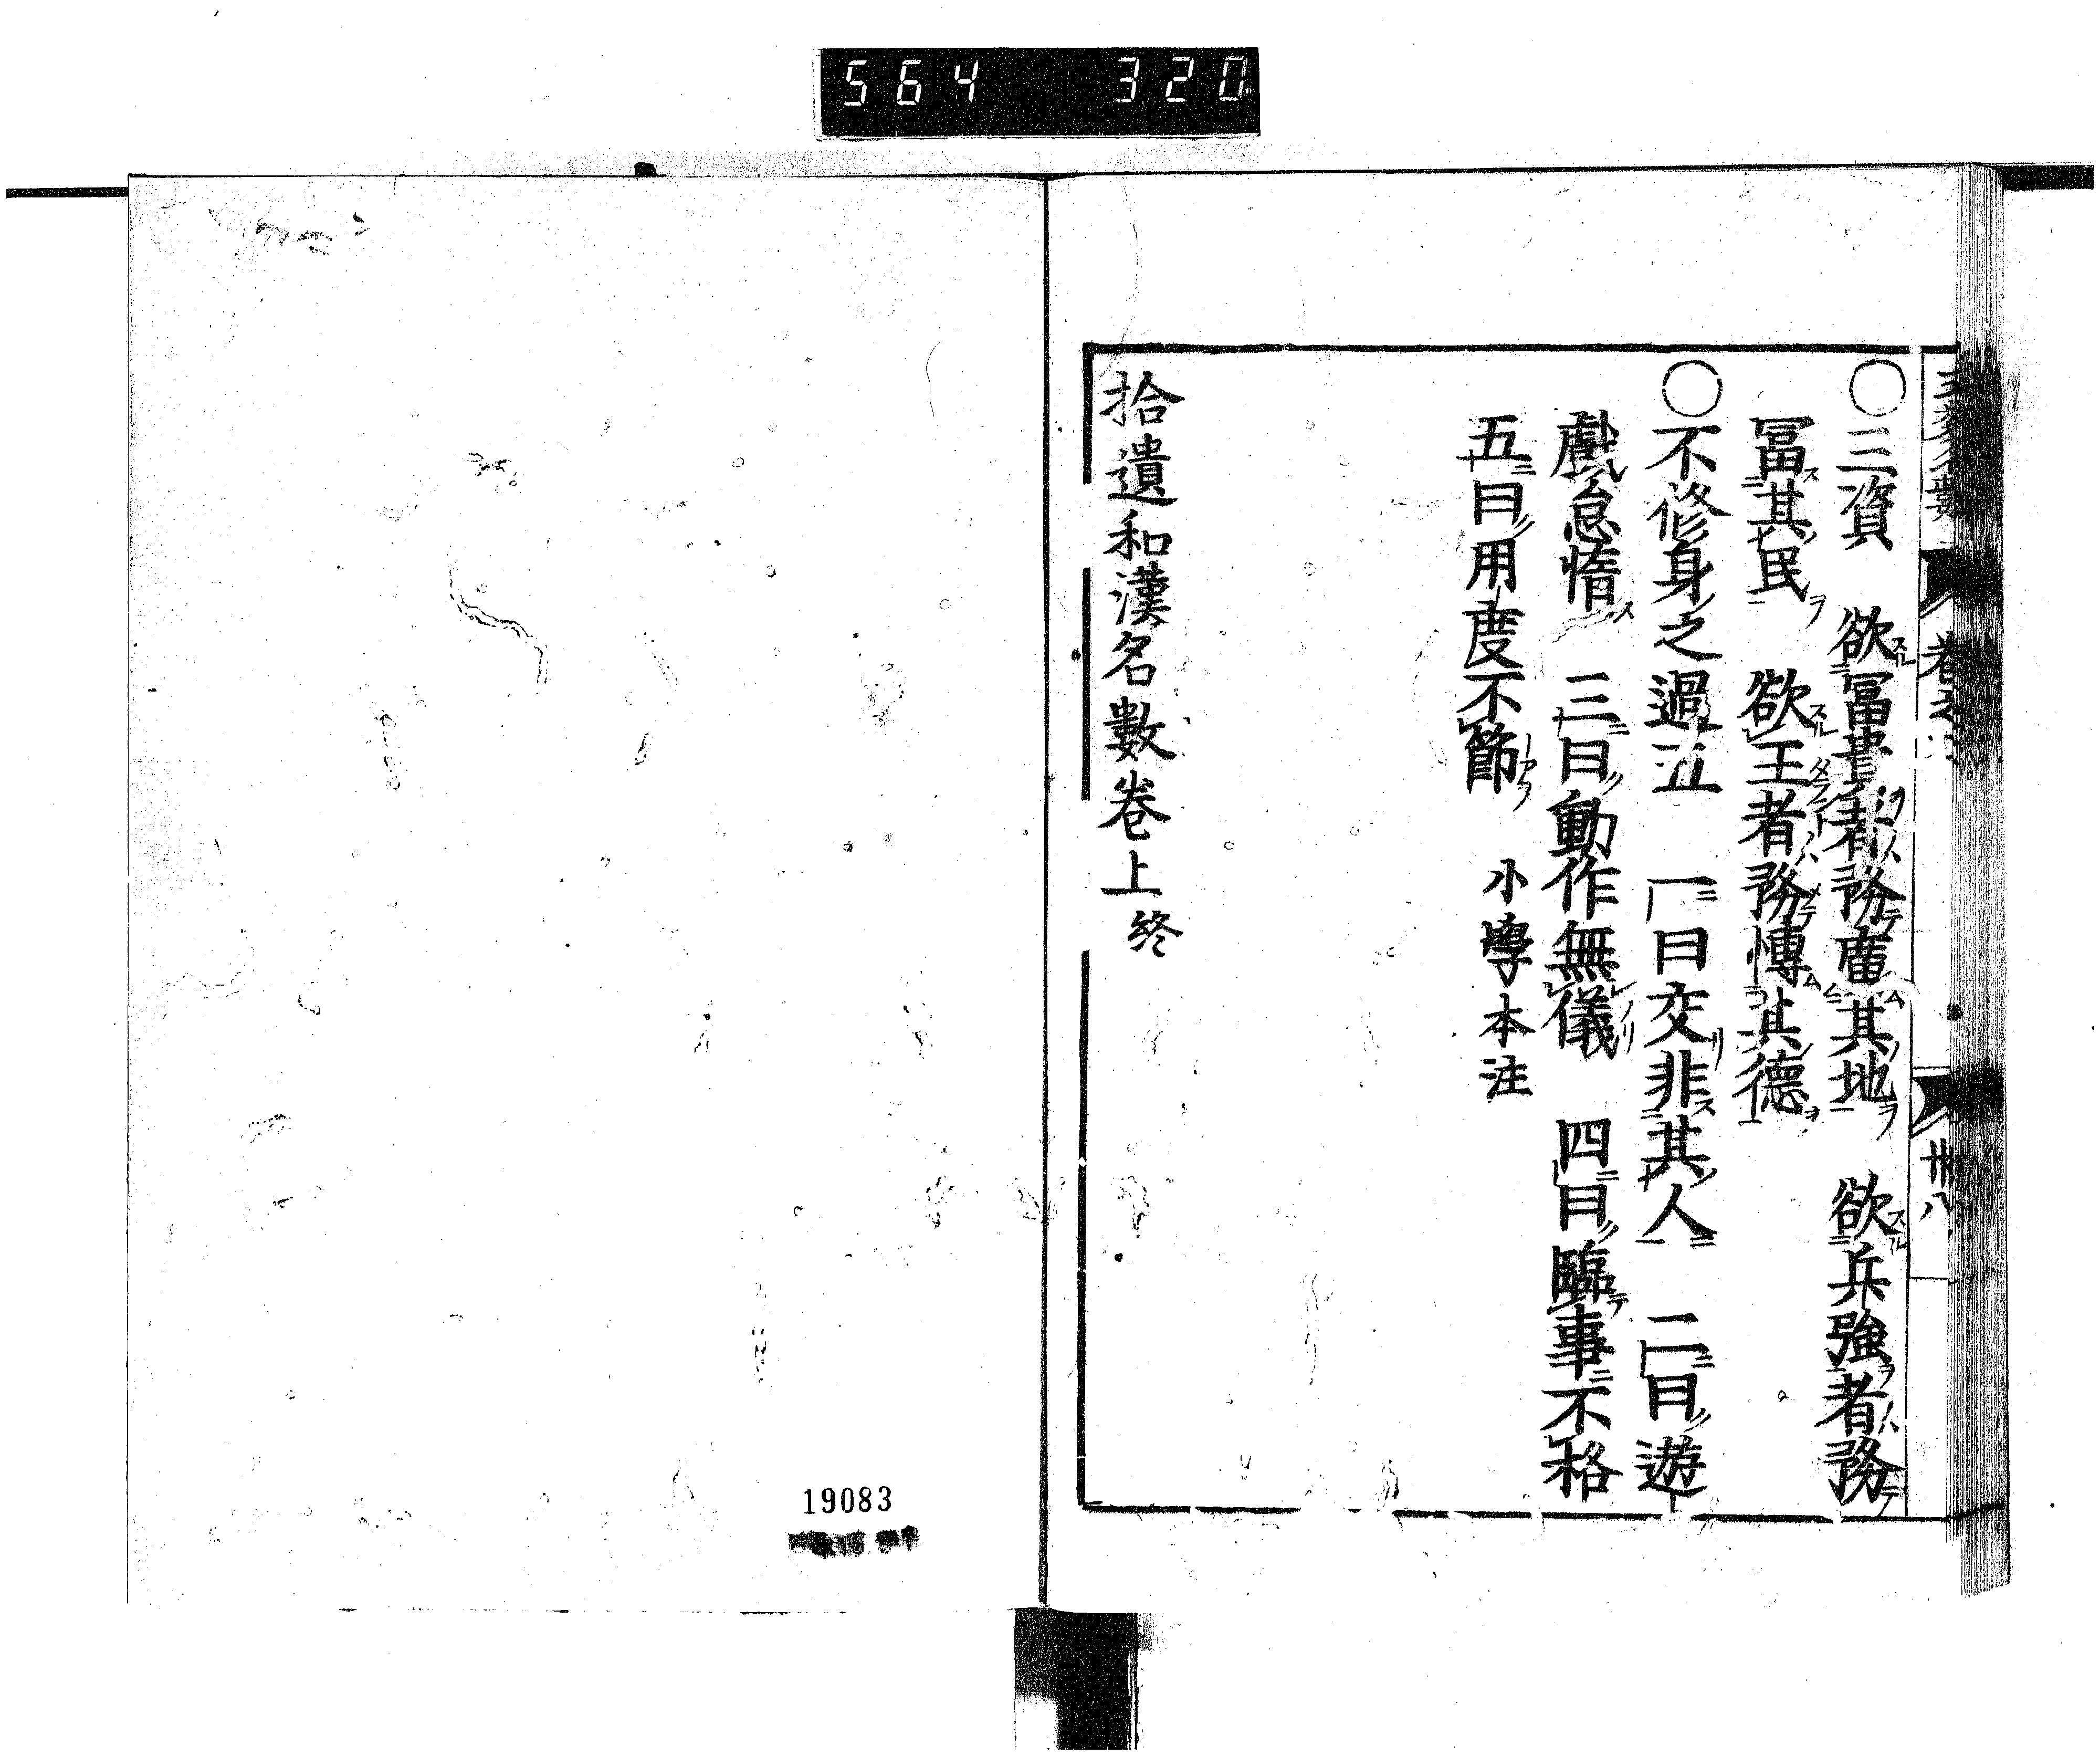 564 320
○三資 欲冨貴者務廣其地 欲兵強者務
冨其民 欲王者務慱其德
○不修身之過五 一曰交非其人 二曰遊
戲怠惰 三曰動作無儀 四曰臨事不格
五曰用度不節 小學本注
拾遺和漢名數卷上終
卅八
19083